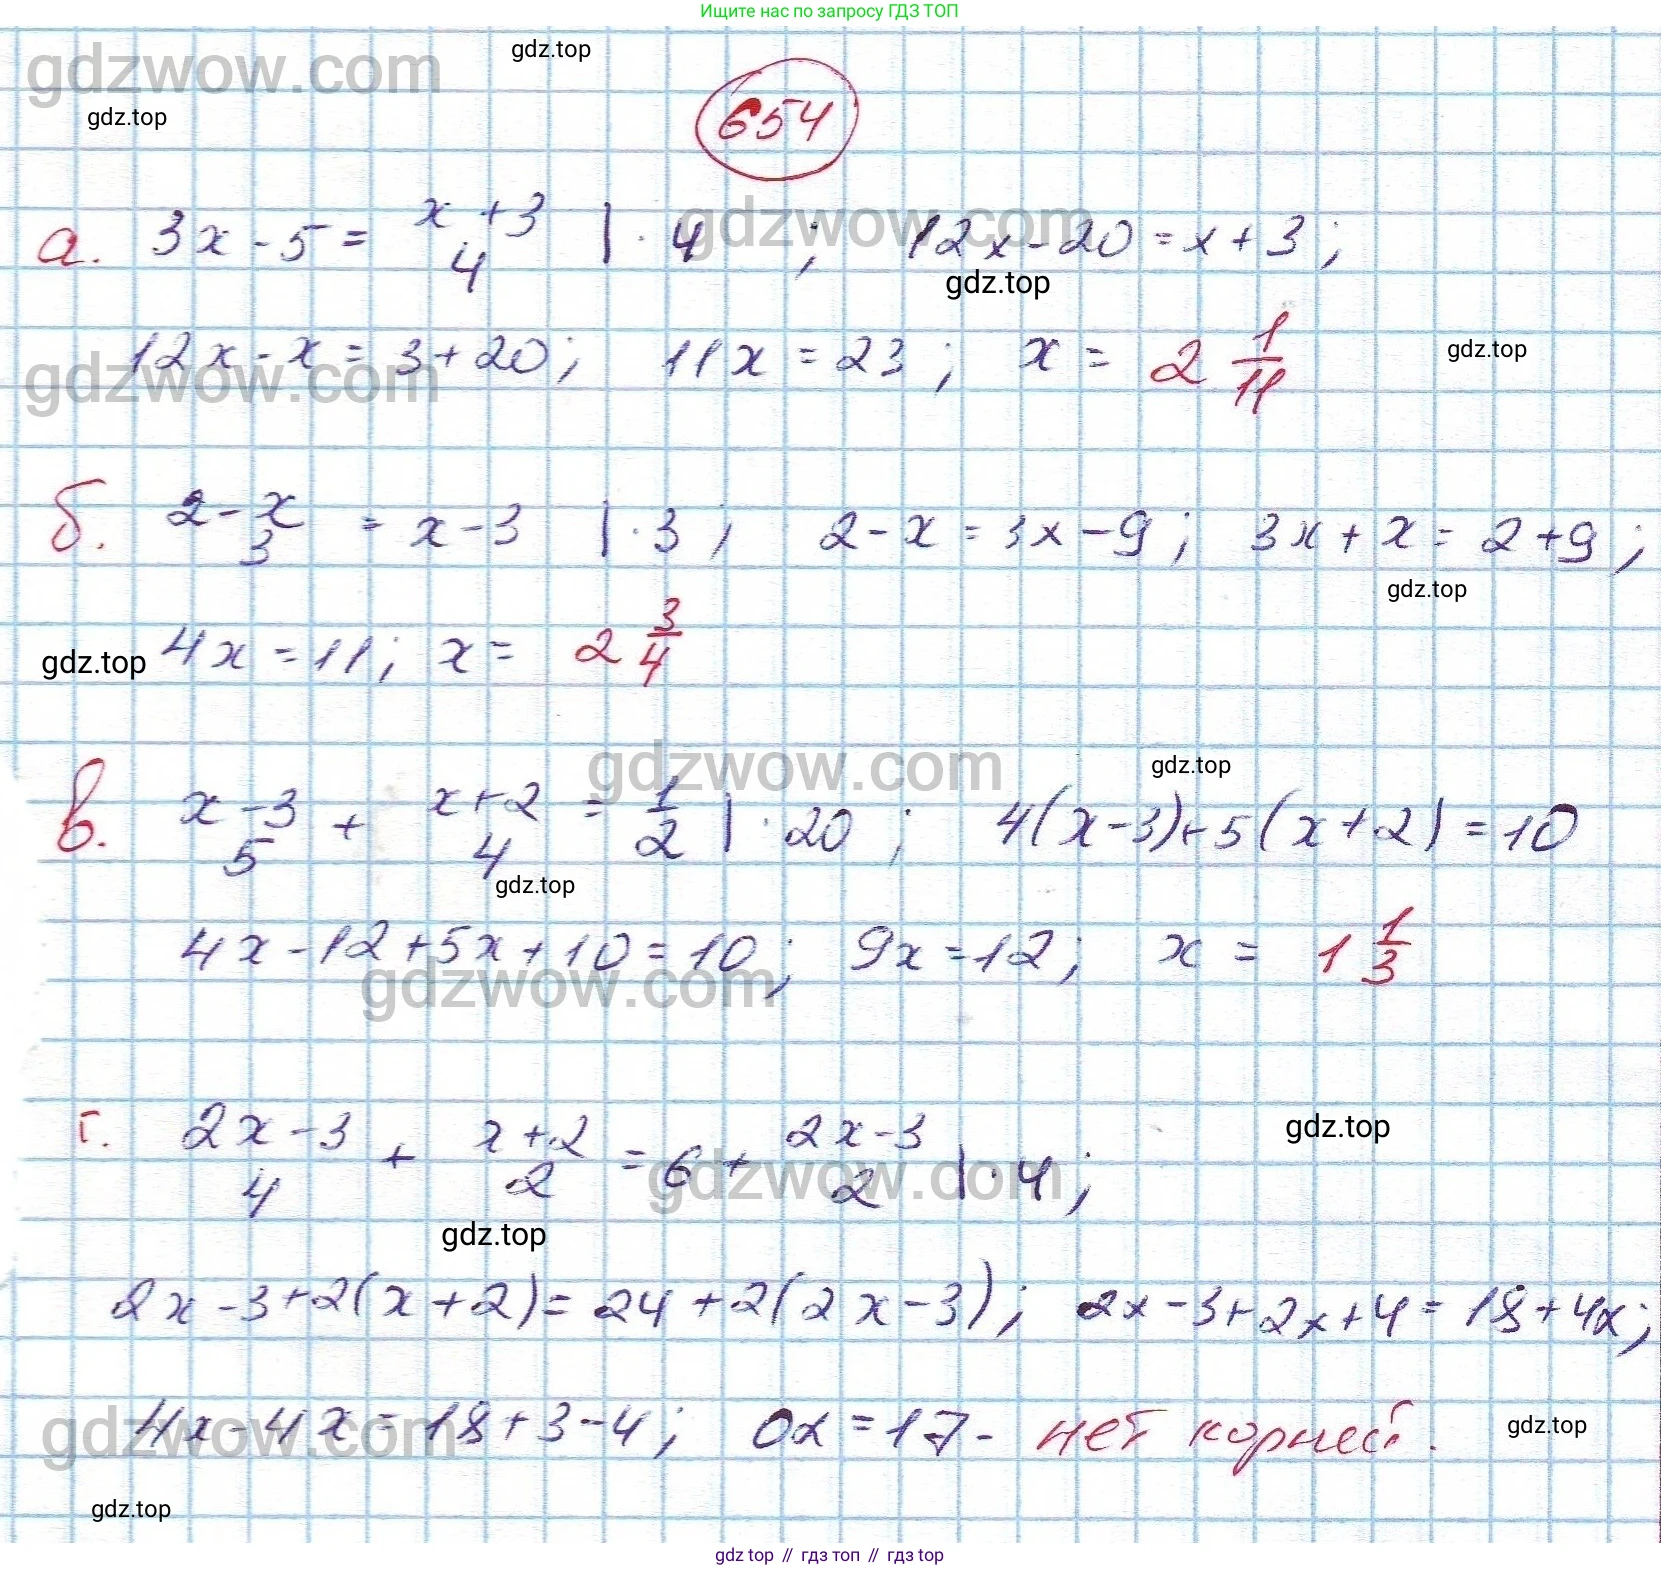 Ищите нас по запросу ГДЗ ТОП
gdzwow.com
gdz.top
gdz.top
654
gdzwow.com
а. 3x - 5 = (x + 3)/4 | · 4 ; 12x - 20 = x + 3 ;
gdz.top
12x - x = 3 + 20 ; 11x = 23 ; x = 2 1/11
gdz.top
gdzwow.com
б. (2 - x)/3 = x - 3 | · 3 ; 2 - x = 3x - 9 ; 3x + x = 2 + 9 ;
gdz.top
gdz.top
4x = 11 ; x = 2 3/4
gdzwow.com
gdz.top
в. (x - 3)/5 + (x + 2)/4 = 1/2 | · 20 ; 4(x - 3) + 5(x + 2) = 10
gdz.top
4x - 12 + 5x + 10 = 10 ; 9x = 12 ; x = 1 1/3
gdzwow.com
г. (2x - 3)/4 + (x + 2)/2 = 6 + (2x - 3)/2 | · 4 ;
gdz.top
gdzwow.com
gdz.top
2x - 3 + 2(x + 2) = 24 + 2(2x - 3) ; 2x - 3 + 2x + 4 = 18 + 4x ;
4x - 4x = 18 + 3 - 4 ; 0x = 17 - нет корней.
gdzwow.com
gdz.top
gdz.top
gdz top // гдз топ // гдз top